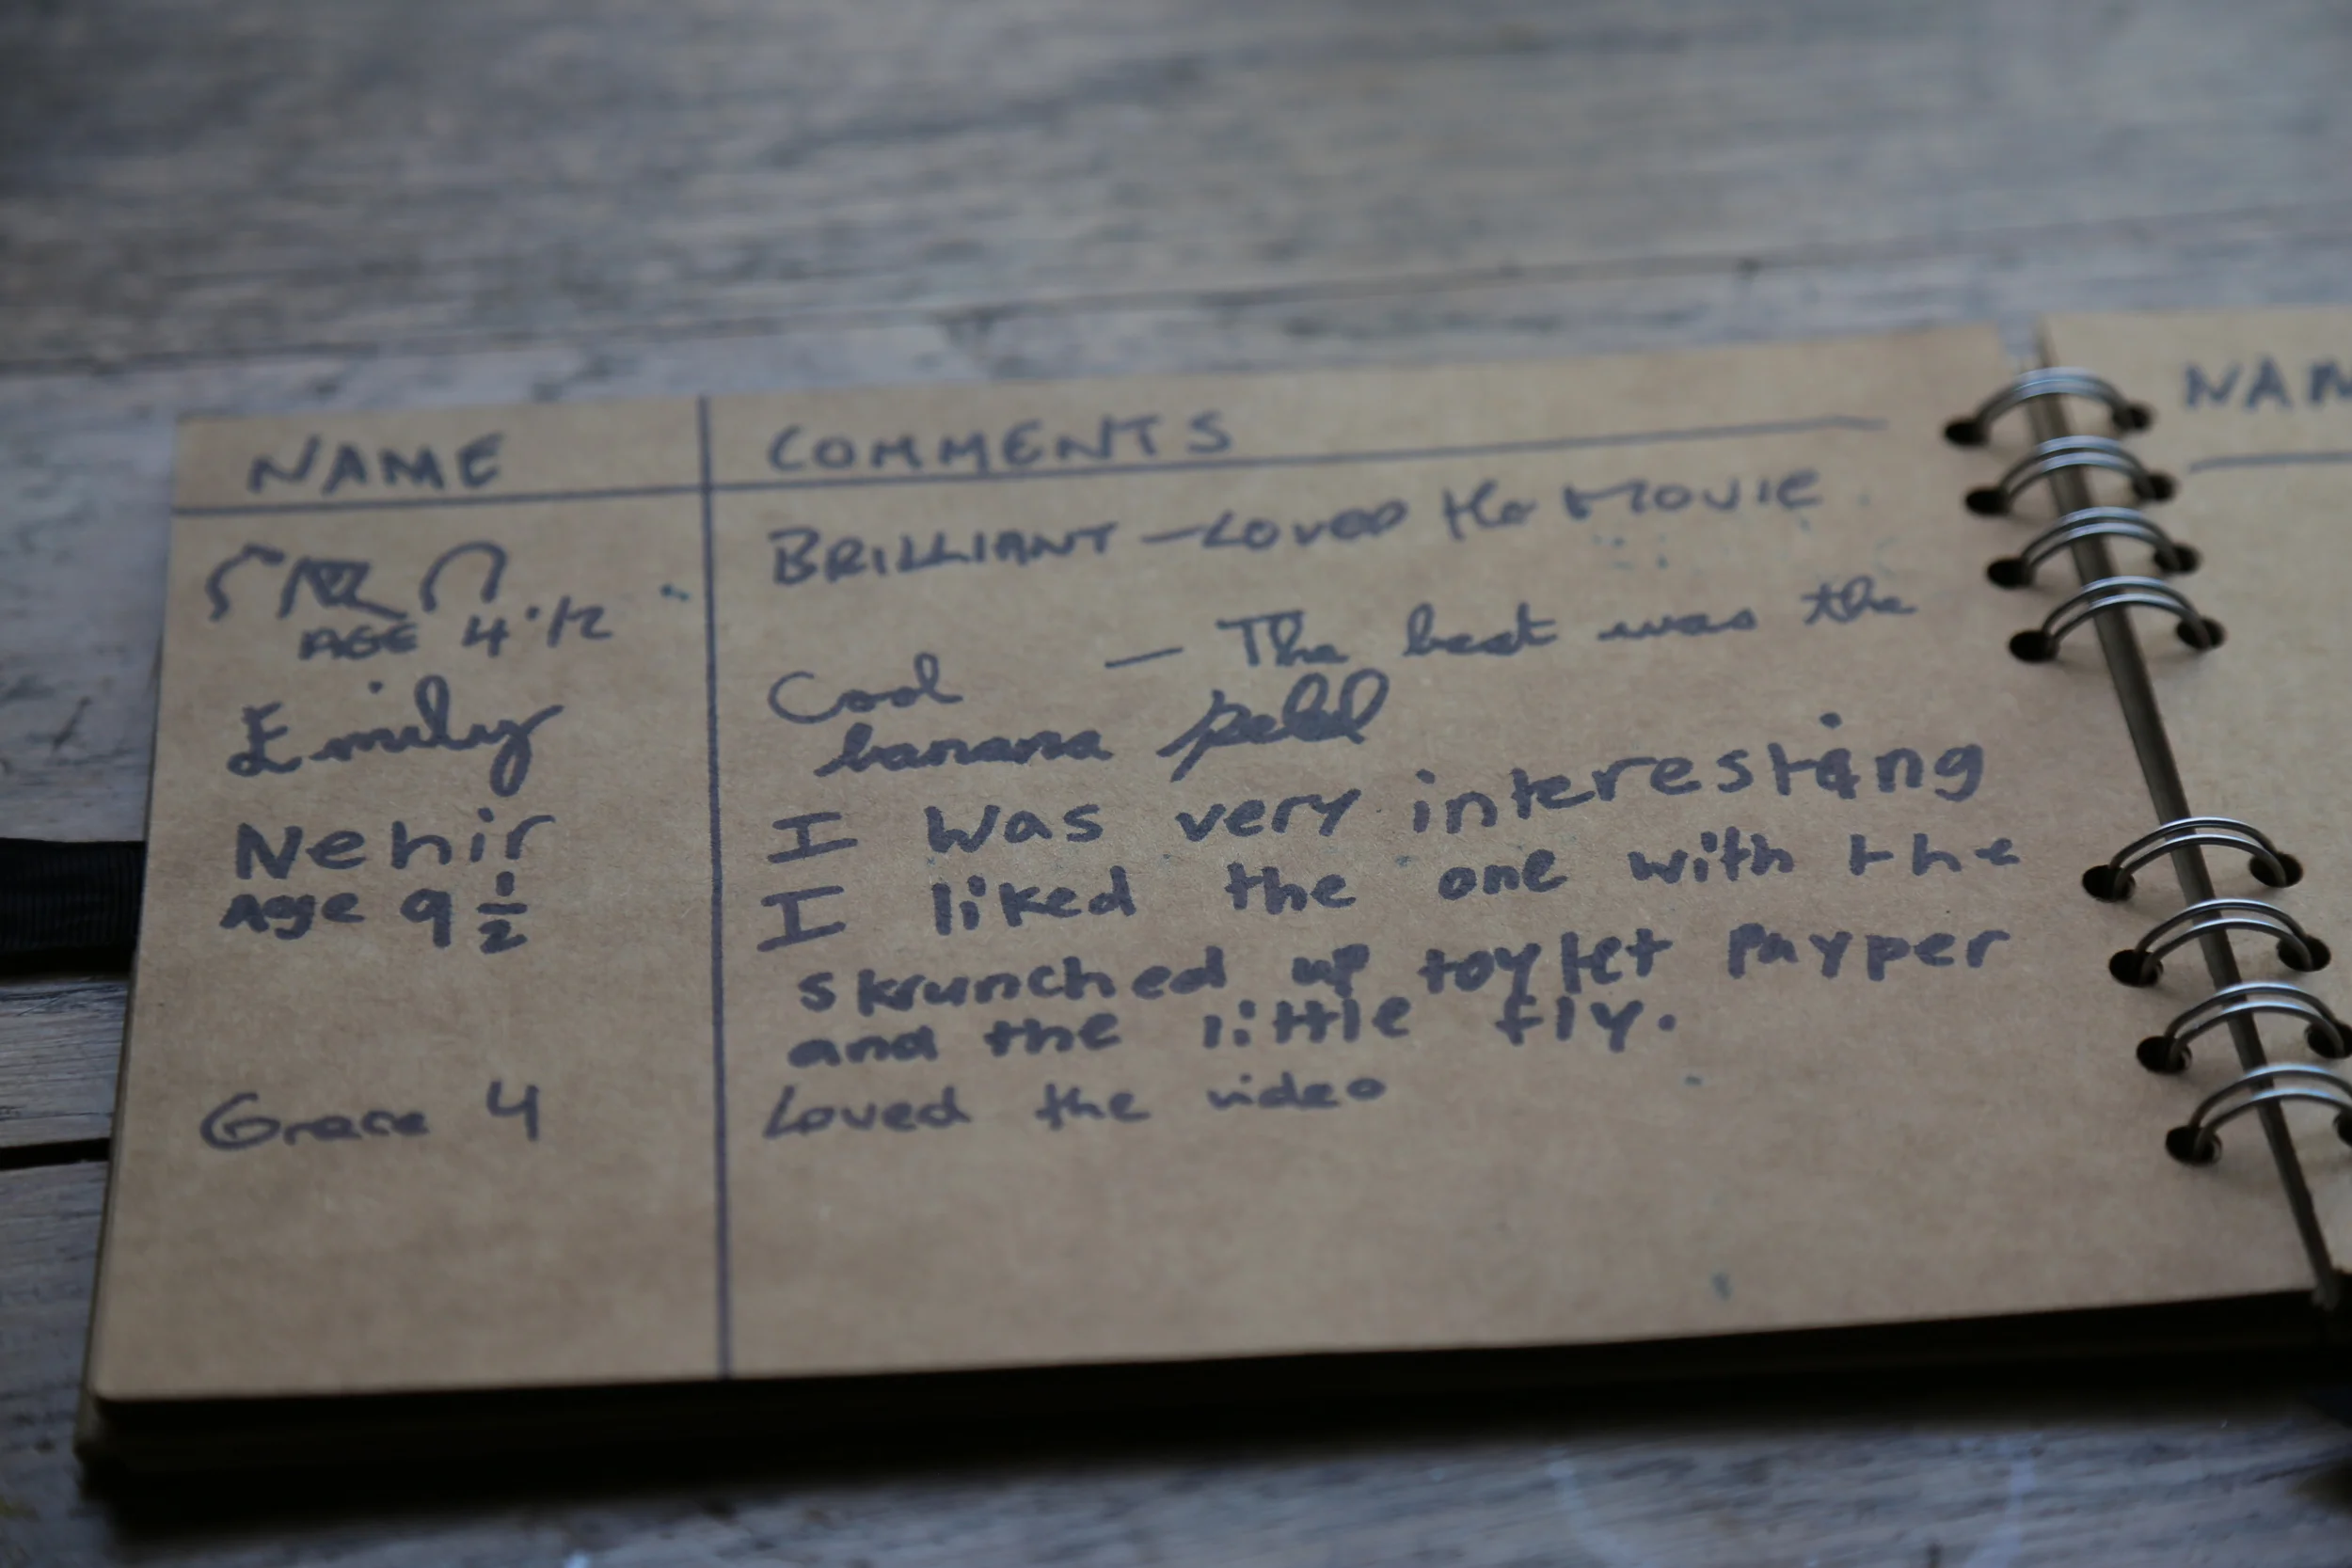 NAME COMMENTS
BRILLIANT - LOVED the MOVIE
AGE 4 1/2
Emily Cool - The best was the
banana
Nehir I was very interesting
Age 9 1/2 I liked the one with the
skrunched up toylet payper
and the little fly.
Grace 4 Loved the video
NAM